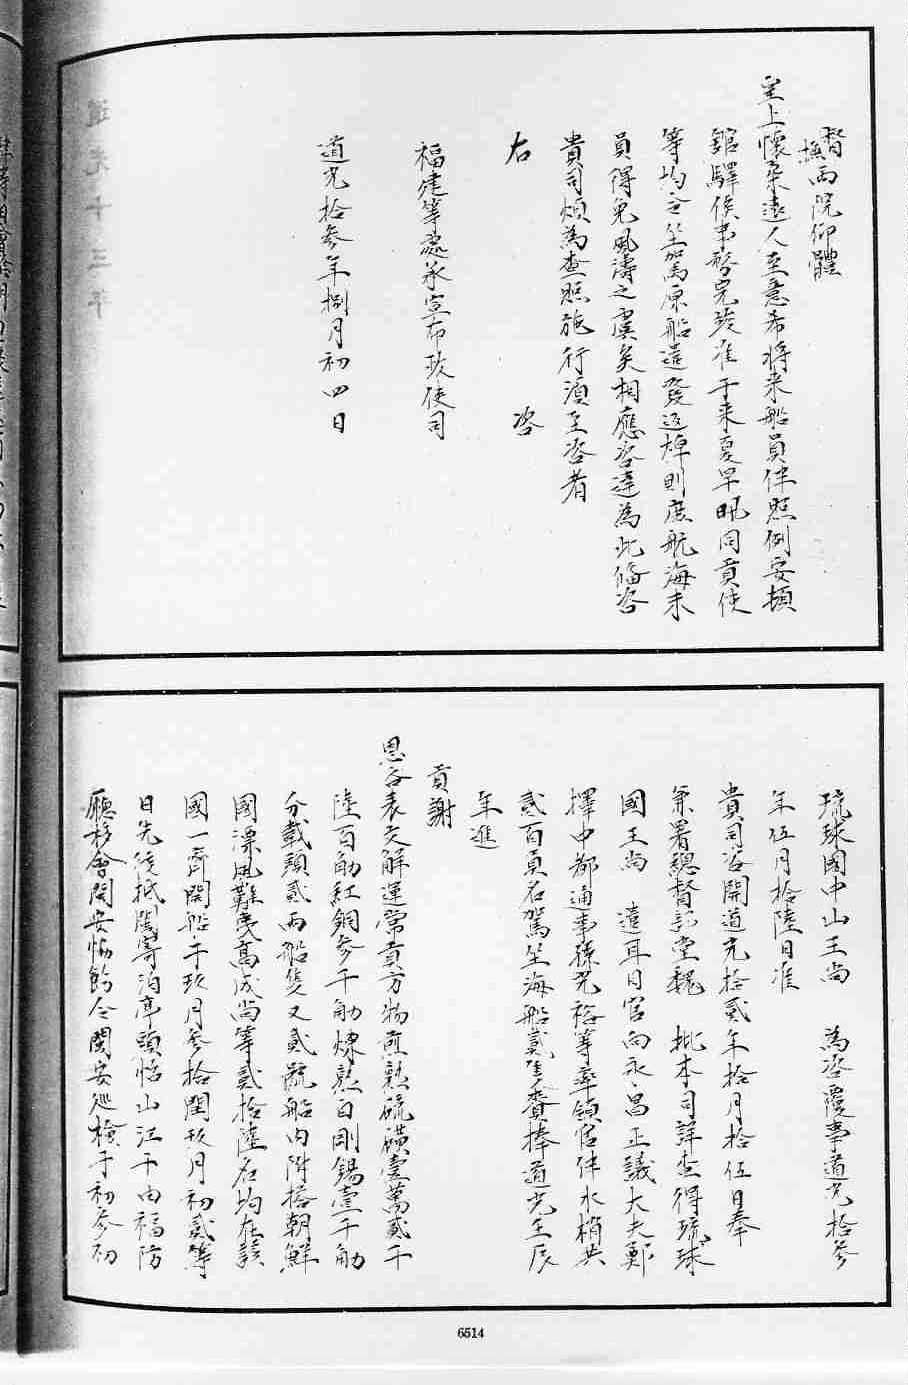 督撫兩院仰體
皇上懷柔遠人至意希將來船員伴照例安頓
館驛俟事務完竣准于來夏早帆同貢使
等均令坐駕原船遣發返棹則庶航海末
員得免風濤之虞矣相應咨達為此備咨
貴司煩為查照施行須至咨者
右 咨
福建等處承宣布政使司
道光拾參年捌月初四日
琉球國中山王尚 為咨覆事道光拾參
年伍月拾陸日准
貴司咨開道光拾貳年拾月拾伍日奉
兼署總督部堂魏 批本司詳查得琉球
國王尚 遣耳目官向永昌正議大夫鄭
擇中都通事孫光裕等率領官伴水梢共
貳百員名駕坐海船貳隻賫捧道光壬辰
年進
貢謝
恩各表文解運常貢方物煎熟硫磺壹萬貳千
陸百觔紅銅參千觔煉熟白剛錫壹千觔
分載頭貳兩船隻又貳號船內附搭朝鮮
國漂風難夷高成尚等貳拾陸名均在該
國一齊開船于玖月參拾閏玖月初貳等
日先後抵閩寄泊亭頭怡山江干由福防
廳移會閩安協飭令閩安巡檢于初參初
6514
道光十三年